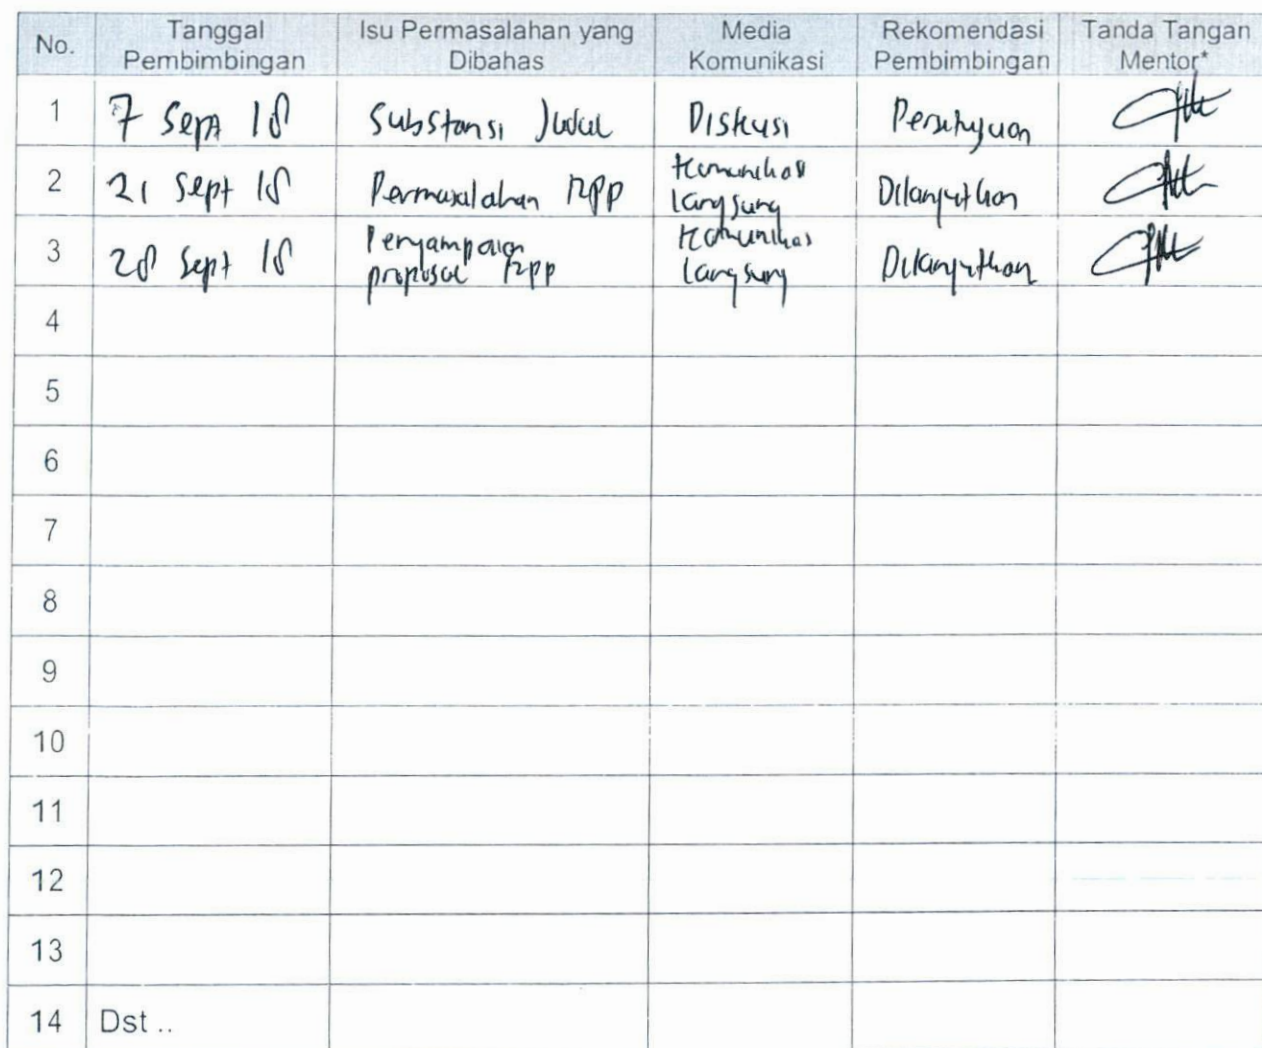 No.
Tanggal Pembimbingan
Isu Permasalahan yang Dibahas
Media Komunikasi
Rekomendasi Pembimbingan
Tanda Tangan Mentor*
1
7 Sept 18
Substansi Judul
Diskusi
Persetujuan
2
21 Sept 18
Permasalahan RPP
Komunikasi
langsung
Dilanjutkan
3
28 Sept 18
Penyampaian
proposal RPP
Komunikasi
langsung
Dilanjutkan
4
5
6
7
8
9
10
11
12
13
14
Dst ..